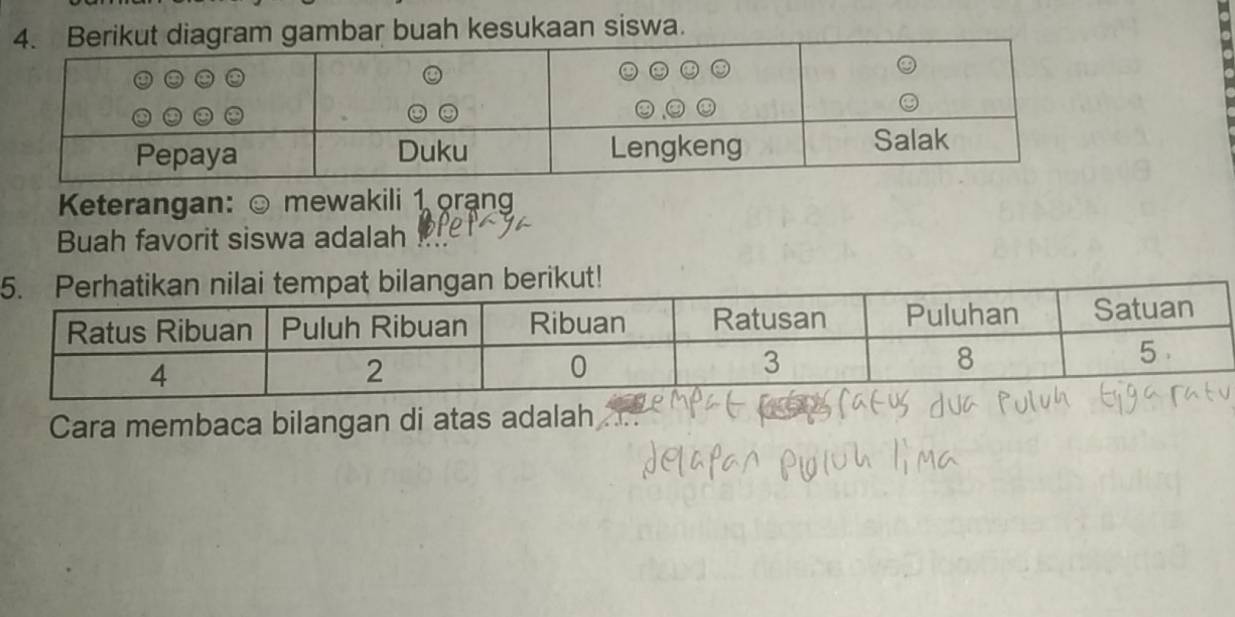 4. Berikut diagram gambar buah kesukaan siswa.
☺ ☺ ☺ ☺ ☺ ☺ ☺ ☺ ☺ ☺
☺ ☺ ☺ ☺ ☺ ☺ ☺ ☺ ☺ ☺
Pepaya Duku Lengkeng Salak
Keterangan: ☺ mewakili 1 orang
Buah favorit siswa adalah .... Pepaya
5. Perhatikan nilai tempat bilangan berikut!
Ratus Ribuan Puluh Ribuan Ribuan Ratusan Puluhan Satuan
4 2 0 3 8 5
Cara membaca bilangan di atas adalah .... empat ratus dua puluh tiga ratu
delapan puluh lima